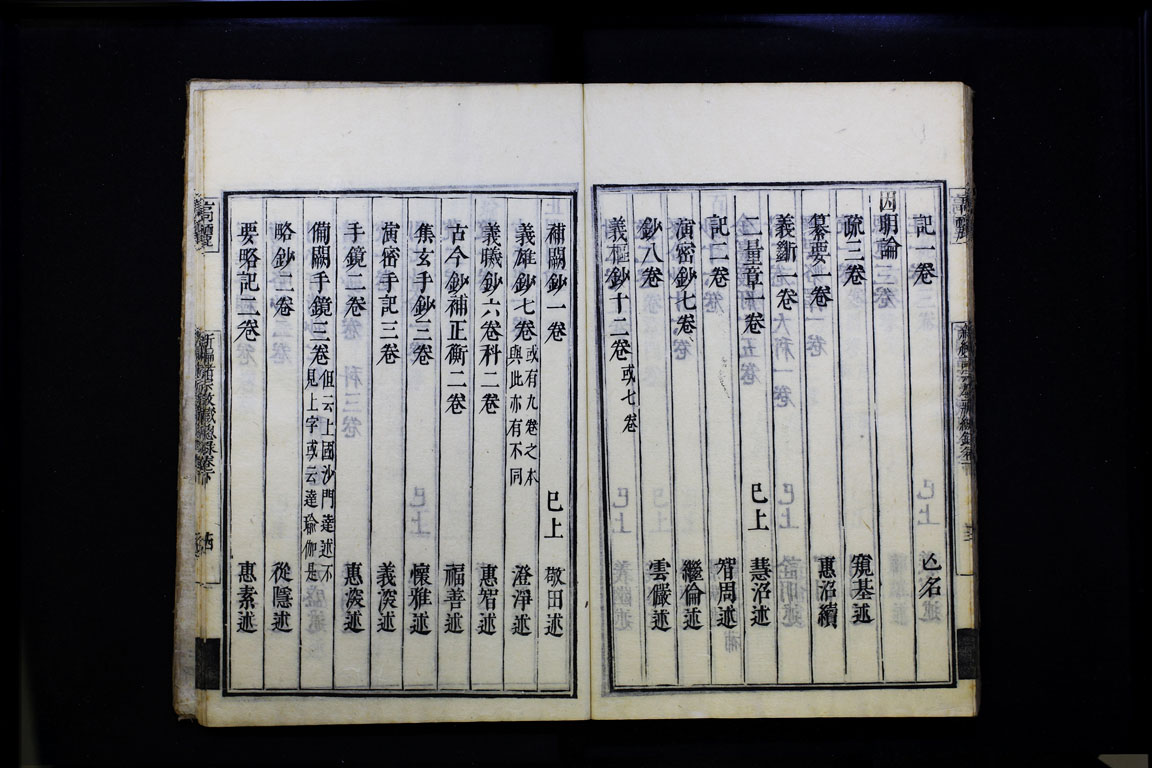 記一卷 亡名
因明論
疏三卷 窺基述
纂要一卷 惠沼續
義斷一卷
二量章一卷 已上 慧沼述
記二卷 智周述
演密鈔七卷 繼倫述
鈔八卷 雲儼述
義樞鈔十二卷 或七卷
補闕鈔一卷 已上 敬田述
義雄鈔七卷 或有九卷之本與此亦有不同 澄淨述
義曦鈔六卷科二卷 惠智述
古今鈔補正衡二卷 福善述
集玄手鈔三卷 懷雅述
演密手記三卷 義㴱述
手鏡二卷 惠㴱述
備闕手鏡三卷 但云上國沙門達述不見上字或云達瑜伽是
略鈔二卷 從隱述
要略記二卷 惠素述
新編諸宗教藏總錄卷下